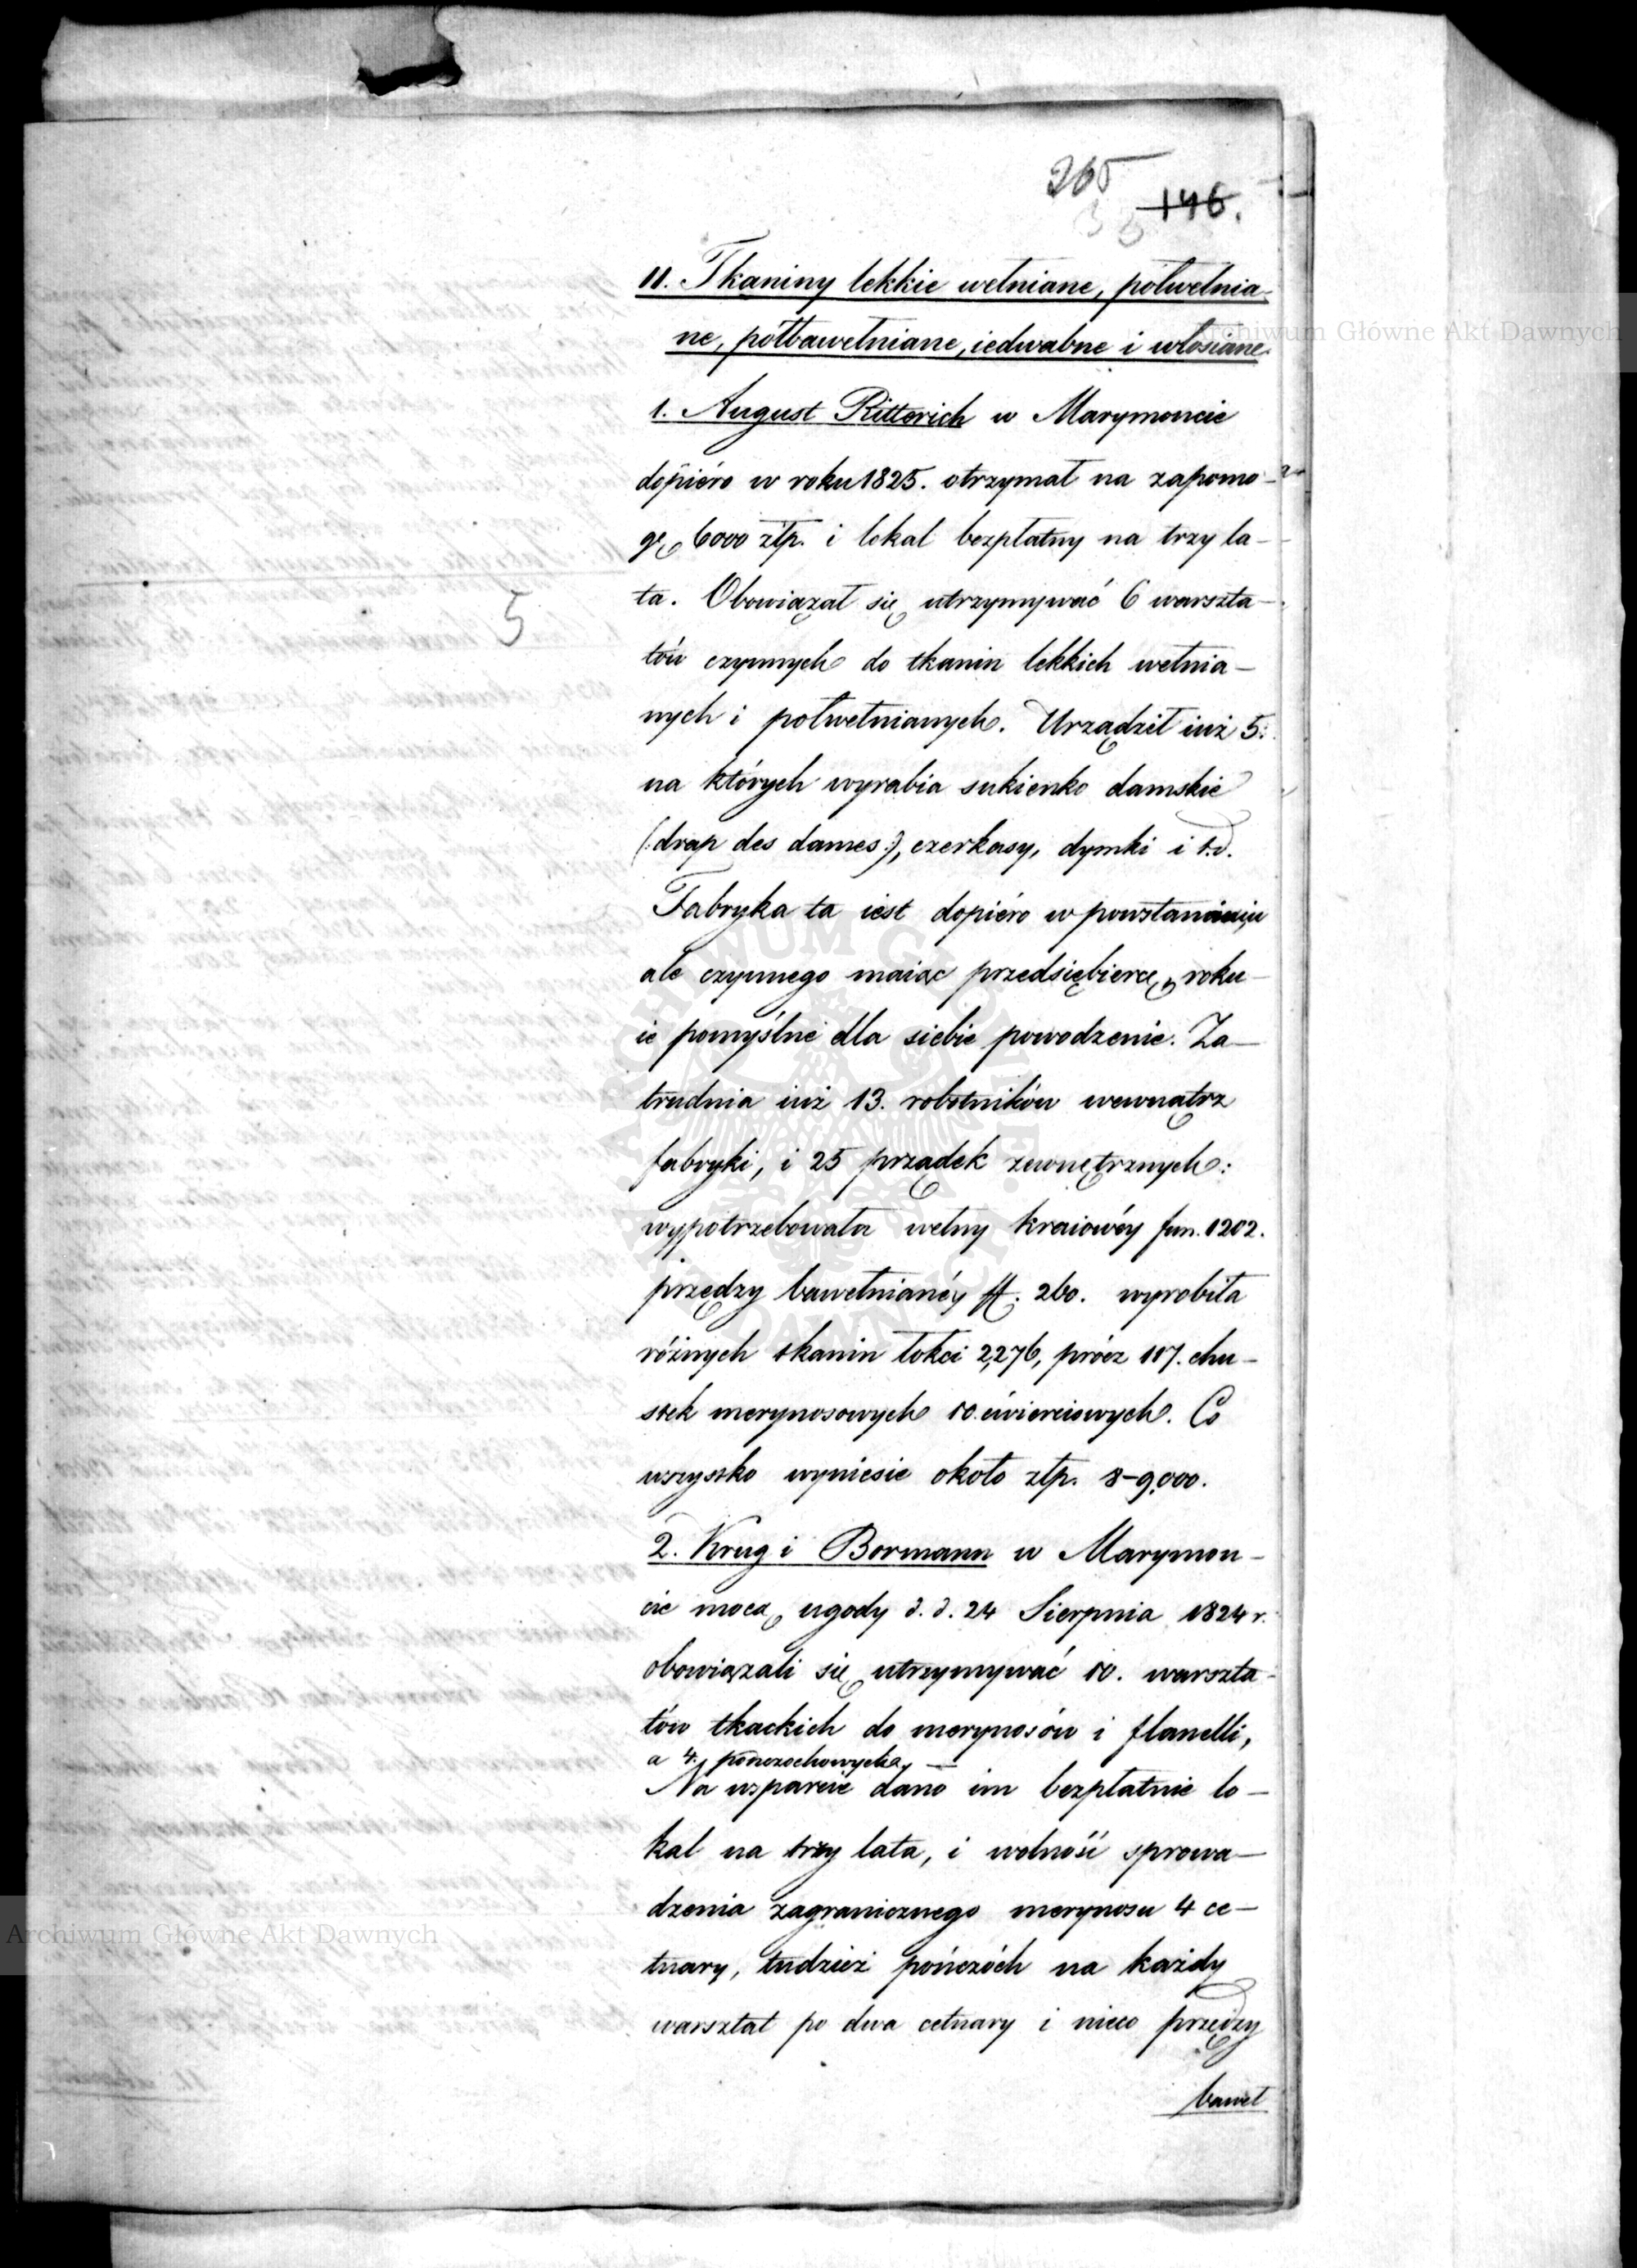 265
146.
11. Tkaniny lekkie wełniane, półwełnia-
ne, półbawełniane, iedwabne i włosiane.
1. August Ritterich w Marymoncie
dopiéro w roku 1825. otrzymał na zapomo-
gę 6000 złp. i lokal bezpłatny na trzy la-
ta. Obowiązał się utrzymywać 6 warszta-
5
tów czynnych do tkanin lekkich wełnia-
nych i półwełnianych. Urządził iuż 5.
na których wyrabia sukienko damskie
(:drap des dames:), czerkasy, dymki i t.d.
Fabryka ta iest dopiéro w powstaniu
ale czynnego maiąc przedsiębiercę, roku-
ie pomyślne dla siebie powodzenie. Za-
trudnia iuż 13. robotników wewnątrz
fabryki, i 25 prządek zewnętrznych:
wypotrzebowała wełny kraiowéy fun. 1202.
przędzy bawełnianéy ff. 260. wyrobiła
różnych tkanin łokci 2,276, prócz 117. chu-
stek merynosowych 10.ćwierciowych. Co
wszystko wyniesie około złp. 8-9,000.
2. Krug i Bormann w Marymon-
cie mocą ugody d. d. 24 Sierpnia 1824 r.
obowiązali się utrzymywać 10. warszta-
tów tkackich do merynosów i flanelli,
a 4. pończochowych,
Na wsparcie dano im bezpłatnie lo-
kal na trzy lata, i wolność sprowa-
dzenia zagranicznego merynosu 4 ce-
tnary, tudzież pończóch na każdy
warsztat po dwa cetnary i nieco przędzy
baweł
Archiwum Główne Akt Dawnych
Archiwum Główne Akt Dawnych
ARCHIWUM GŁÓWNE AKT DAWNYCH